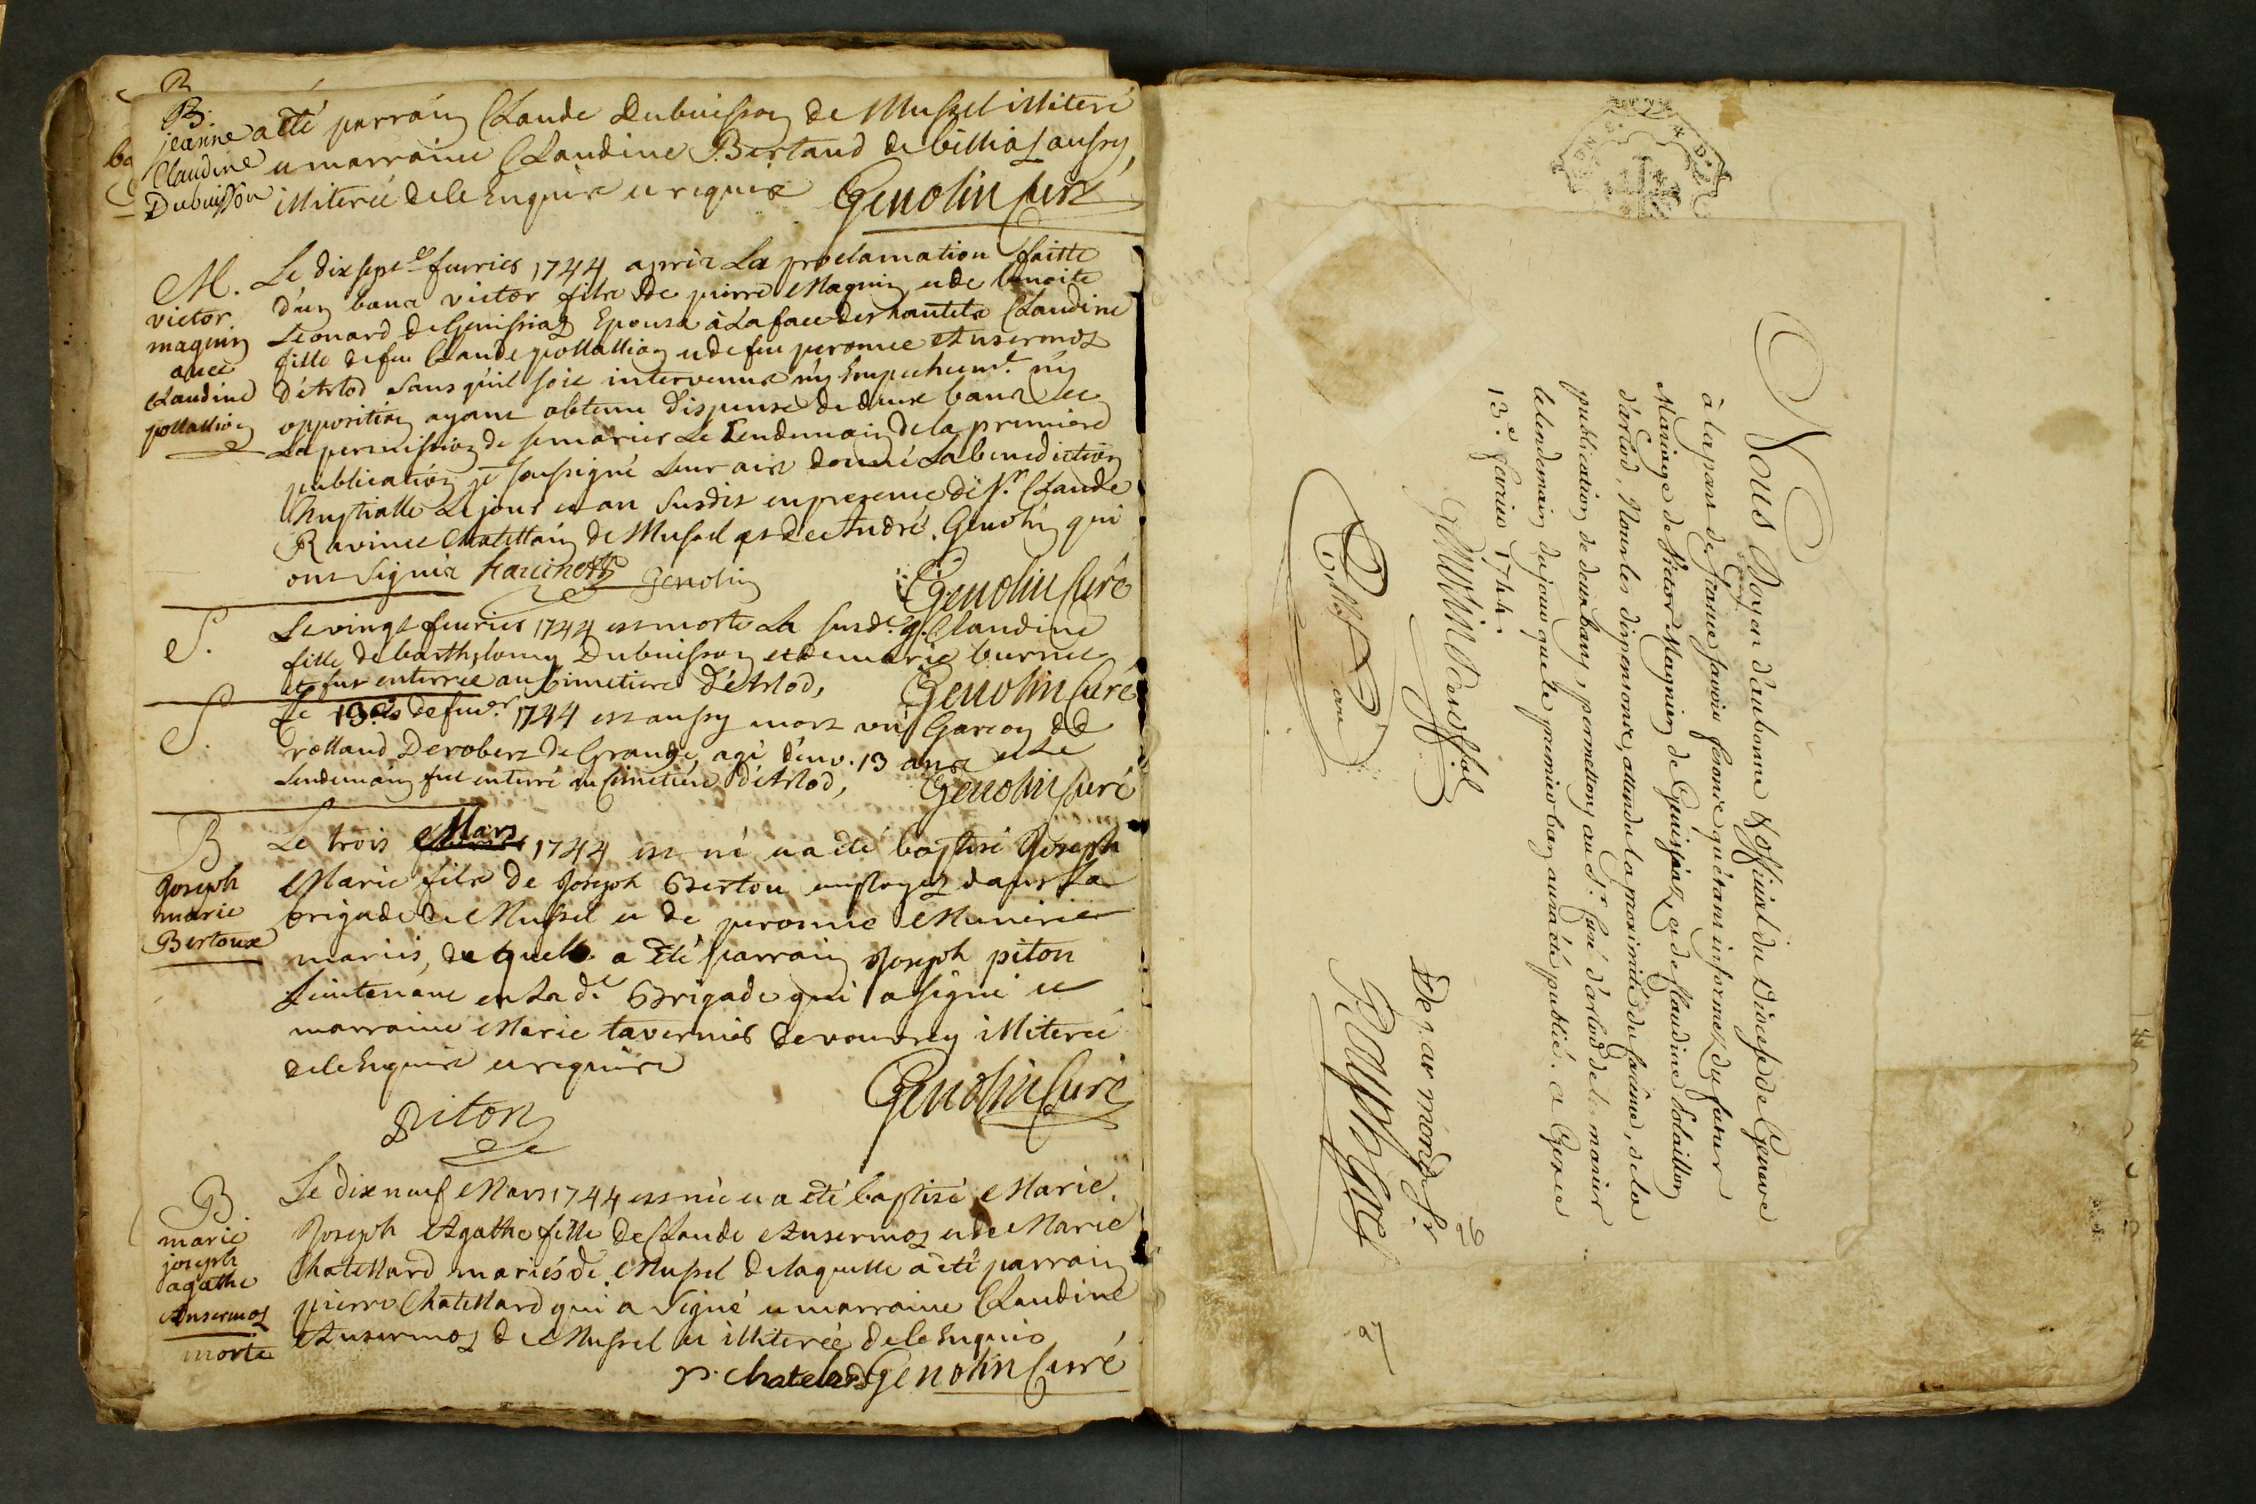 B.
jeanne
Claudine
Dubuisson
a été parrain Claude Dubuisson de Mussel illiteré
et marraine Claudine Bertand de billiaz aussy
illiterée de ce enquis et requis Genolin Curé
M.
victor
magnin
avec
Claudine
pollallion
Le dix sept.e fevrier 1744 après La proclamation faitte
d'un banc victor fils de pierre Magnin et de benoite
Leonard de Genissiaz Epousa à La face des hautels Claudine
fille de feu Claude pollallion et de feu peronne Ansermoz
d'Arlod sans qu'il soit intervenus ny Empechem.t ny
opposition ayant obtenu dispense de deux bancs et
La permission de se marier Le Lendemain de la premiere
publication je soussigné Leur ais donné La benediction
Nuptialle Le jour et an susdit en presence de s.r Claude
Ravinet Chatellain de Mussel et de André Genolin qui
ont signés Genolin
Genolin Curé
S.
Le vingt fevrier 1744 est morte La susd.e j. Claudine
fille de barthelemy Dubuisson et de marie burnet
et fut enterrée au Cimetiere d'Arlod, Genolin Curé
S.
Le 13 de fev.r 1744 est aussy mort un Garcon de
rolland Derobert de Grange agé d'env. 13 ans et Le
Lendemain fut enterré au Cimetiere d'Arlod, Genolin Curé
B
Joseph
marie
Bertoux
Le trois Mars 1744 est né et a été baptisé Joseph
Marie fils de Joseph Bertou employez dans La
brigade de Mussel et de peronne
mariés, duquel a été parrain Joseph piton
Lieutenant en La d.e Brigade qui a signé et
marraine Marie tavernier de vouvrey illiterée
de ce Enquise et requise
piton
Genolin Curé
B.
marie
joseph
agathe
Ansermoz
morte
Le dix neuf Mars 1744 est née et a été baptisé Marie
Joseph Agathe fille de Claude Ansermoz et de Marie
Chatellard mariés de Mussel de laquelle a été parrain
pierre Chatellard qui a signé et marraine Claudine
Ansermoz de Mussel et illiterée de ce Enquis
p. chatelard Genolin Curé
Nous Doyen d'aubonne & official du Diocese de Geneve
à la part de france savoir faisons qu'étant informez du futur
Mariage de Victor Magnin de Genissiaz, et de Claudine Polaillon
d'arlod, Nous les dispensons, attendu la proximité du carême, de la
publication de deux bans, permettons au S.r Curé d'arlod de les marier
le lendemain du jour que le premier ban aura été publié. a Gex ce
13.e fevrier 1744.
De par mondit S.r
26
27